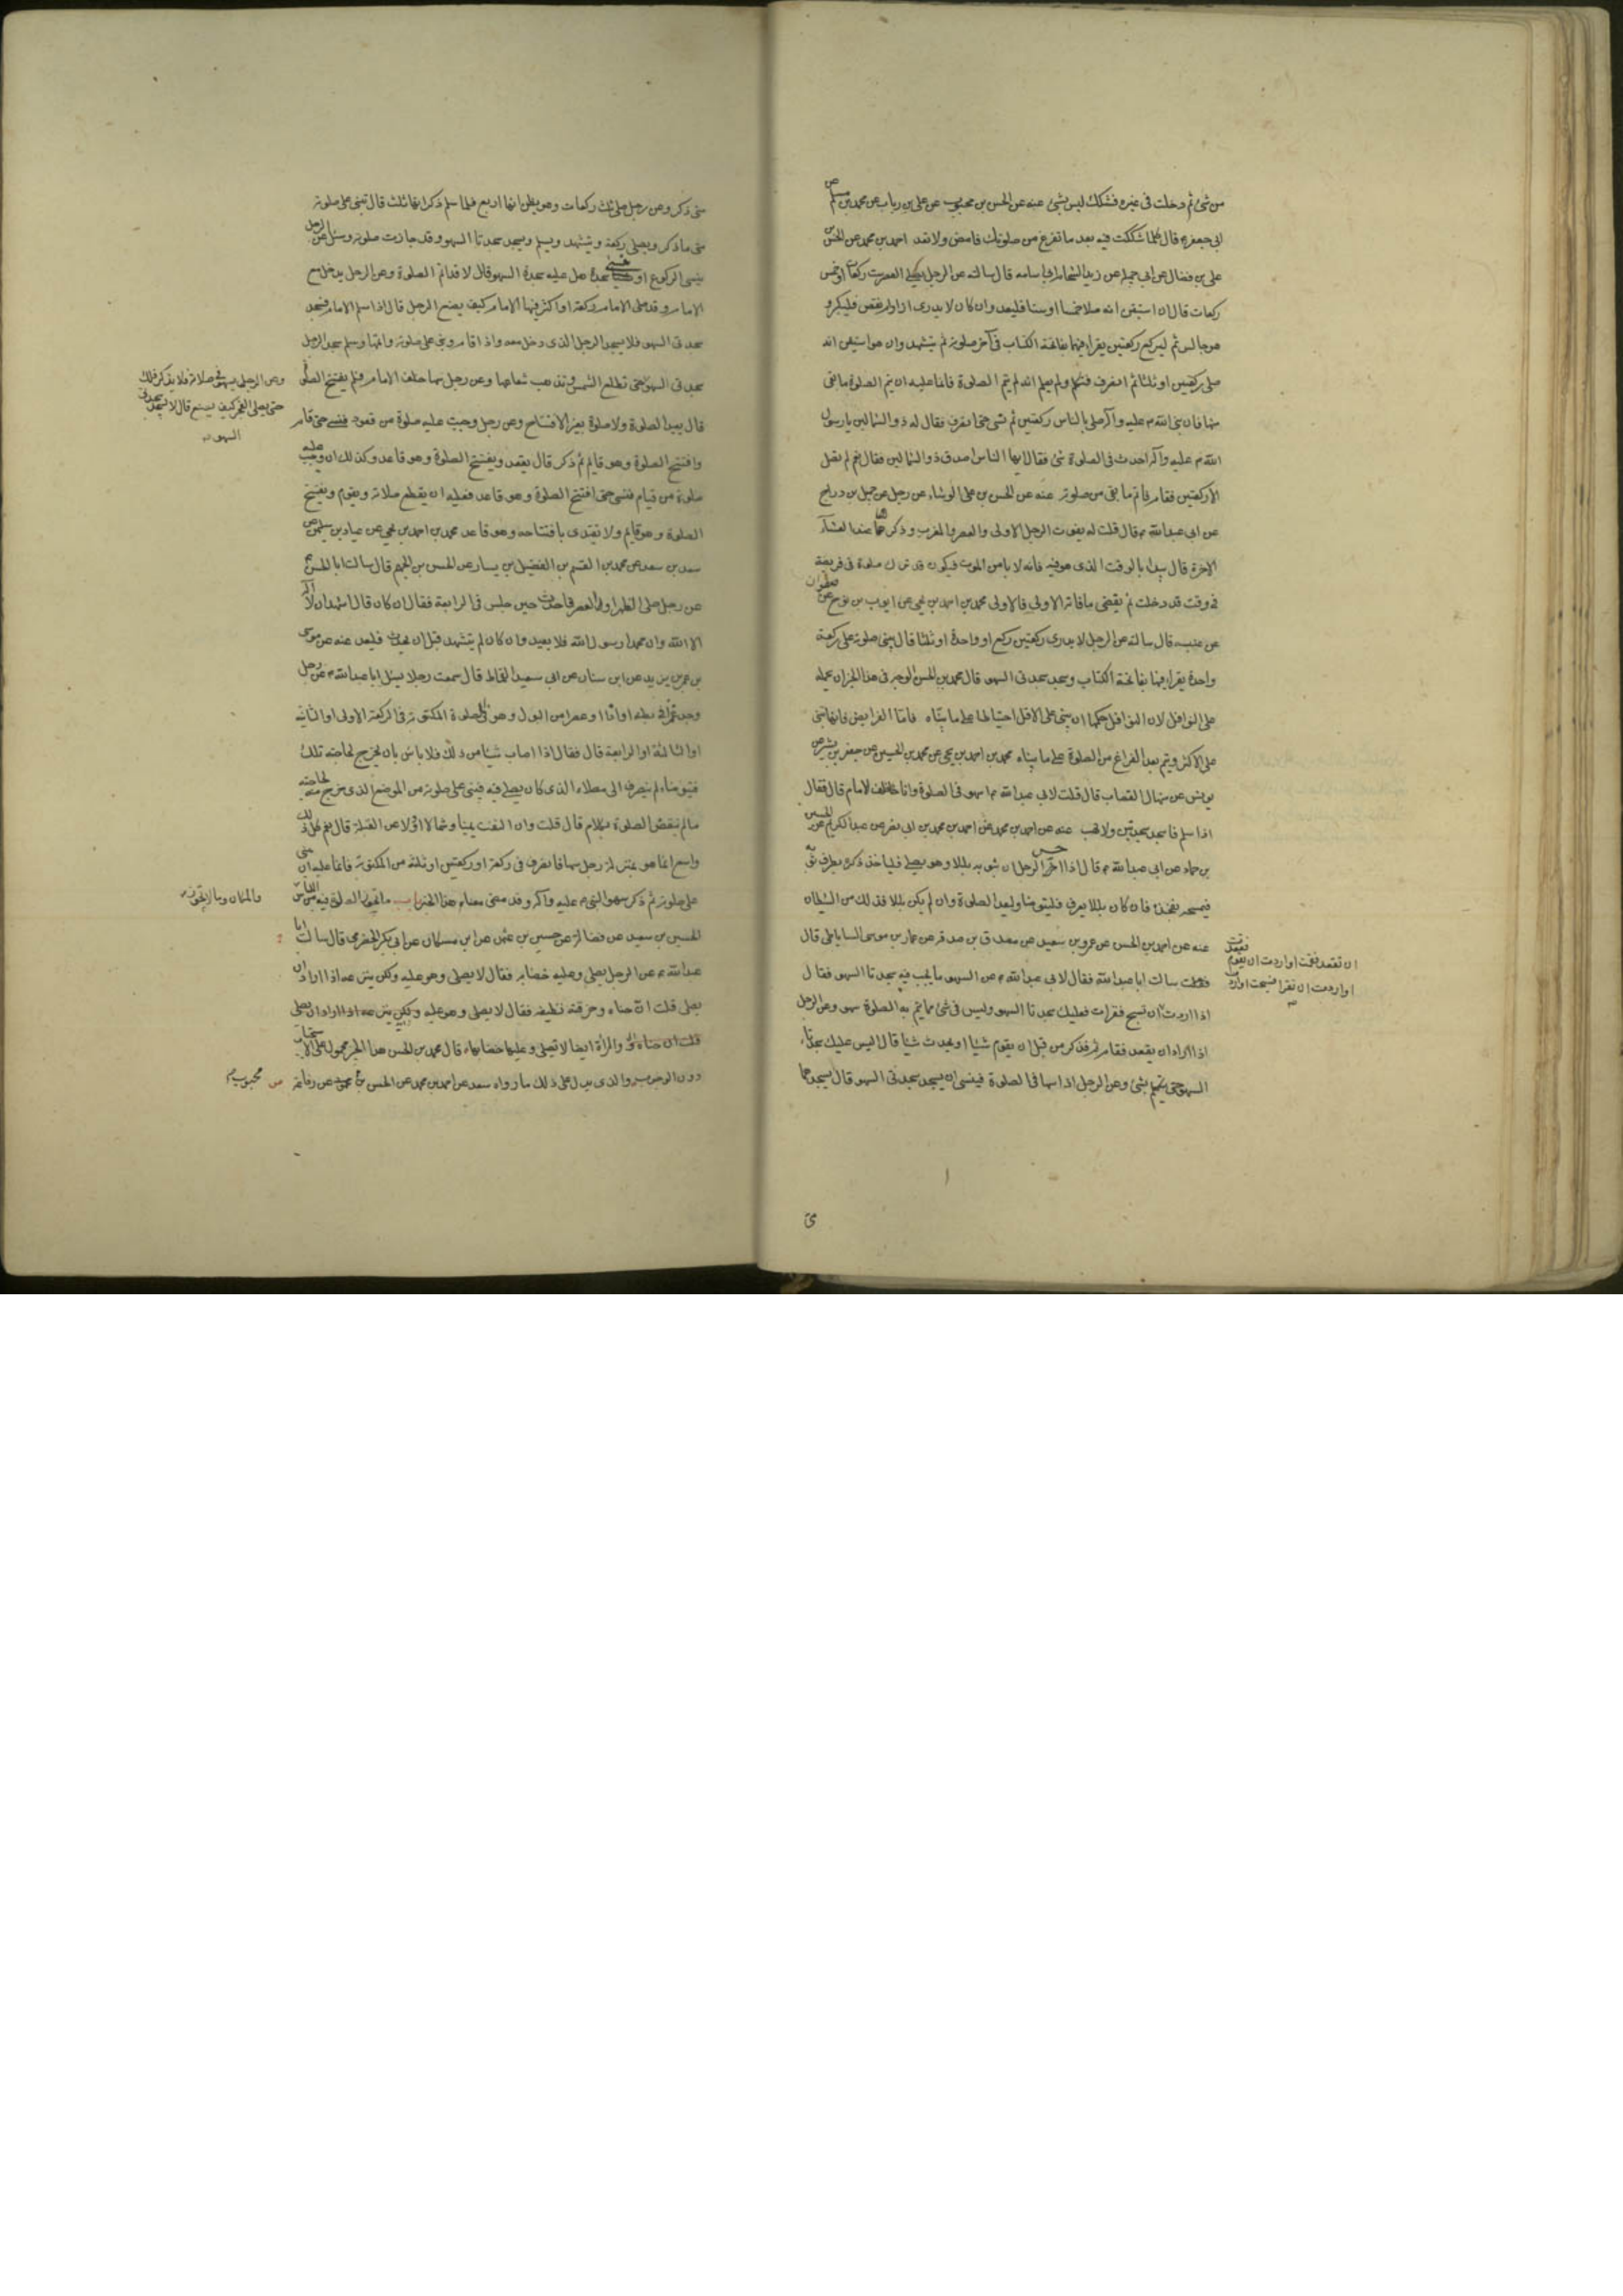 من شئ ثم دخلت فى غيره فشكك ليس بشئ عنه عن الحسن بن محبوب عن على بن رياب عن محمد بن مسلم عن
ابى جعفر ع قال كلما شككت فيه بعد ما تفرغ من صلوتك فامض ولا تعد احمد بن محمد عن الحسن بن
على بن فضال عن ابى جميلة عن زيد الشحام ابى اسامه قال سالته عن الرجل يصلى العصر ست ركعات او خمس
ركعات قال ان استيقن انه صلا خمسا او ستا فليعد وان كان لا يدرى ازاد ام نقص فليكبر و
هو جالس ثم ليركع ركعتين يقرا فيهما بفاتحة الكتاب فى آخر صلوته ثم يتشهد وان هو استيقن انه
صلى ركعتين او ثلثا ثم انصرف فتكلم ولم يعلم انه لم يتم الصلوة فانما عليه ان يتم الصلوة ما بقى
منها فان نبى الله ص عليه وآله صلى بالناس ركعتين ثم نسى حتى انصرف فقال له ذو الشمالين يا رسول
الله ص عليه وآله احدث فى الصلوة شئ فقال ايها الناس اصدق ذو الشمالين فقال نعم لم تصل
الا ركعتين فقام فاتم ما بقى من صلوته عنه عن الحسن بن على الوشاء عن رجل عن جميل بن دراج
عن ابى عبدالله ع قال قلت له يفوت الرجل الاولى والعصر والمغرب وذكرها عند العشاء
الاخرة قال يبدا بالوقت الذى هو فيه فانه لا يامن الموت فيكون قد ترك صلوة فى فريضة
فى وقت قد دخلت ثم يقضى ما فاته الاولى فالاولى محمد بن احمد بن يحيى عن ايوب بن نوح عن صفوان
عن عنبسه قال سالته عن الرجل لا يدرى ركعتين ركع او واحدة او ثلثا قال يبنى صلوته على ركعة
واحدة يقرا فيها بفاتحة الكتاب ويسجد سجدتى السهو قال محمد بن الحسن الوجه فى هذا الخبر ان نحمله
على النوافل لان النوافل حكمها ان يبنى على الاقل احتياطا على ما بيناه فاما الفرايض فانها تبنى
على الاكثر ويتم بعد الفراغ من الصلوة على ما بيناه محمد بن احمد بن يحيى عن محمد بن الحسين عن جعفر بن بشير عن
يونس عن منهال القصاب قال قلت لابى عبدالله ع اسهو فى الصلوة وانا خلف الامام قال فقال
اذا سلم فاسجد سجدتين ولا تهب عنه عن احمد بن محمد عن احمد بن محمد بن ابى نصر عن عبد الكريم عن الحسين
بن حماد عن ابى عبدالله ع قال اذا احس الرجل ان بثوبه بللا وهو يصلى فلياخذ ذكره بطرف ثوبه
فيمسحه بفخذه فان كان بللا يعرف فليتوضا وليعد الصلوة وان لم يكن بللا فذلك من الشيطان
عنه عن احمد بن الحسن عن عمرو بن سعيد عن مصدق بن صدقه عن عمار بن موسى الساباطى قال
سالت ابا عبدالله فقال لابى عبدالله ع عن السهو ما يجب فيه سجدتا السهو فقال
اذا اردت ان تسبح فقرات فعليك سجدتا السهو وليس فى شئ مما يتم به الصلوة سهو وعن الرجل
اذا اراد ان يقعد فقام ثم ذكر من قبل ان يقوم شيئا او يحدث شيئا قال ليس عليك سجدتا
السهو حتى يتكلم بشئ وعن الرجل اذا سها فى الصلوة فينسى ان يسجد سجدتى السهو قال يسجدهما
ان تقعد فقمت او اردت ان تقوم فقعدت
او اردت ان تقرا فسبحت او اردت
متى
متى ذكر وعن رجل صلى ثلث ركعات وهو يظن انها اربع فلما سلم ذكر انها ثلث قال يبنى على صلوته
متى ما ذكر ويصلى ركعة ويتشهد ويسلم ويسجد سجدتا السهو وقد جازت صلوته وسئل عن الرجل
ينسى الركوع او ينسى سجدة هل عليه سجدة السهو قال لا قد اتم الصلوة وعن الرجل يدخل مع
الامام وقد صلى الامام ركعة او اكثر فسها الامام كيف يصنع الرجل قال اذا سلم الامام فسجد
سجدتى السهو فلا يسجد الرجل الذى دخل معه واذا قام وبنى على صلوته واتمها وسلم سجد الرجل
سجدتى السهو حتى تطلع الشمس وتذهب شعاعها وعن رجل سها خلف الامام فلم يفتتح الصلوة
قال يعيد الصلوة ولا صلوة بغير الافتتاح وعن رجل وجبت عليه صلوة من قعود فنسى حتى قام
وافتتح الصلوة وهو قايم ثم ذكر قال يقعد ويفتتح الصلوة وهو قاعد وكذلك ان وجبت عليه
صلوة من قيام فنسى حتى افتتح الصلوة وهو قاعد فعليه ان يقطع صلاته ويقوم ويفتتح
الصلوة وهو قايم ولا يقتدى بافتتاحه وهو قاعد محمد بن احمد بن يحيى عن عباد بن سليمن عن
سعد بن سعد عن محمد بن القسم بن الفضيل بن يسار عن الحسن بن الجهم قال سالت ابا الحسن ع
عن رجل صلى الظهر او العصر فاحدث حين جلس فى الرابعة فقال ان كان قال اشهد ان لا اله
الا الله وان محمدا رسول الله فلا يعيد وان كان لم يتشهد قبل ان يحدث فليعد عنه عن موسى
بن عمر بن يزيد عن ابن سنان عن ابى سعيد القماط قال سمعت رجلا يسئل ابا عبدالله ع عن رجل
وجد غمزا فى بطنه او اذا او عصرا من البول وهو فى صلوة المكتوبة فى الركعة الاولى او الثانية
او الثالثة او الرابعة قال فقال اذا اصاب شيئا من ذلك فلا باس بان يخرج لحاجته تلك
فيتوضا ثم ينصرف الى مصلاه الذى كان يصلى فيه فيبنى على صلوته من الموضع الذى خرج منه لحاجته
ما لم ينقض الصلوة بكلام قال قلت وان التفت يمينا وشمالا او ولا عن القبلة قال نعم كل ذلك
واسع انما هو بمنزلة رجل سها فانصرف فى ركعة او ركعتين او ثلثة من المكتوبة فانما عليه ان يبنى
على صلوته ثم ذكر سهو النبى ص عليه وآله وقد مضى معناه هذا الخبر باب ما يجوز الصلوة فيه من اللباس
الحسين بن سعيد عن فضالة عن حسين بن عثمن عن ابن مسكان عن ابى بكر الحضرمى قال سالت ابا
عبدالله ع عن الرجل يصلى وعليه خضابه فقال لا يصلى وهو عليه ولكن ينزعه اذا اراد ان
يصلى قلت ان حناه وخرقته نظيفه فقال لا يصلى وهو عليه ولكن ينزعه اذا اراد ان يصلى
والمراة ايضا لا تصلى وعليها خضابها قال محمد بن الحسن هذا الخبر محمول على الاستحباب
دون الوجوب والذى يدل على ذلك ما رواه سعد عن احمد بن محمد عن الحسن بن محبوب عن رفاعه
وعن الرجل يسهو فى صلاته فلا يذكر ذلك
حتى يصلى الفجر كيف يصنع قال لا يسجد سجدتى
السهو
والمكان وما لا يجوز
محبوب